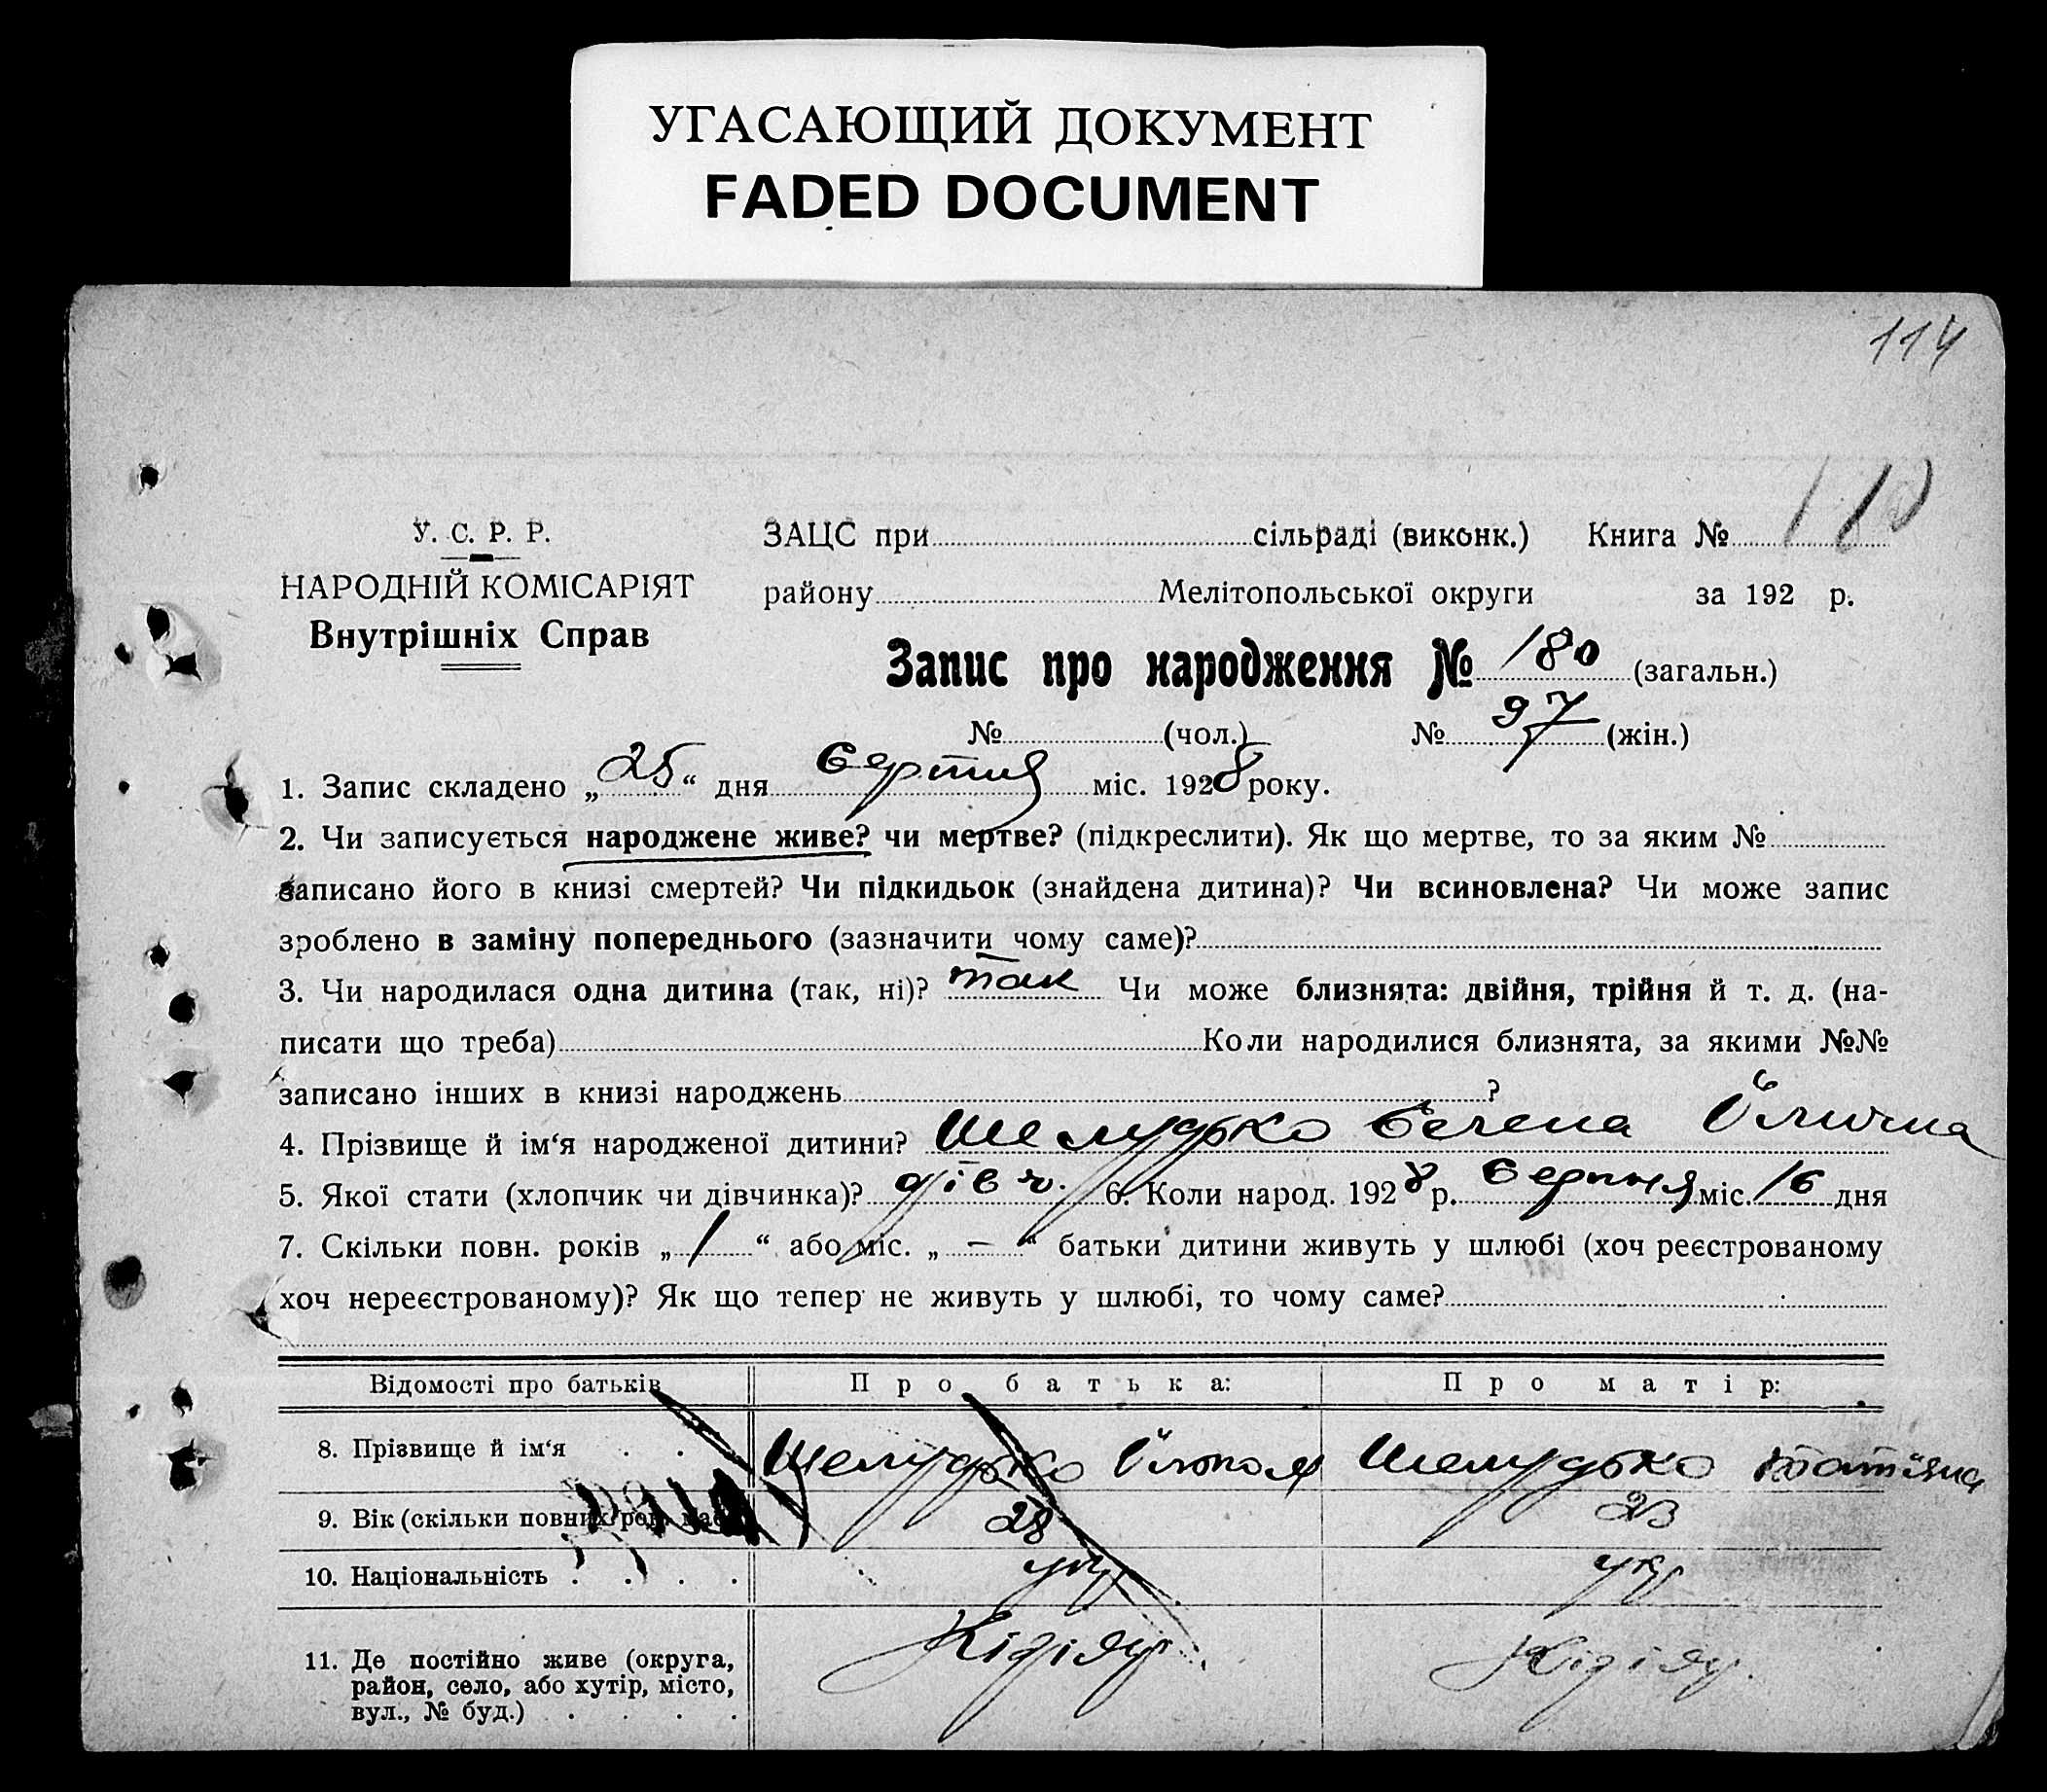 УГАСАЮЩИЙ ДОКУМЕНТ
FADED DOCUMENT
114
У. С. Р. Р.
НАРОДНІЙ КОМІСАРІЯТ
Внутрішніх Справ
ЗАЦС при сільраді (виконк.) Книга №
району Мелітопольської округи за 192 р.
Запис про народження № 180 (загальн.)
№ (чол.) № 97 (жін.)
1. Запис складено „25“ дня міс. 1928 року.
2. Чи записується народжене живе? чи мертве? (підкреслити). Як що мертве, то за яким №
записано його в книзі смертей? Чи підкидьок (знайдена дитина)? Чи всиновлена? Чи може запис
зроблено в заміну попереднього (зазначити чому саме)?
3. Чи народилася одна дитина (так, ні)? так Чи може близнята: двійня, трійня й т. д. (на-
писати що треба) Коли народилися близнята, за якими №№
записано інших в книзі народжень ?
4. Прізвище й ім‘я народженої дитини? Шелудько
5. Якої стати (хлопчик чи дівчинка)? дівч. 6. Коли народ. 1928 р. Серпня міс. 16 дня
7. Скільки повн. років „1“ або міс. „—“ батьки дитини живуть у шлюбі (хоч реєстрованому
хоч нереєстрованому)? Як що тепер не живуть у шлюбі, то чому саме?
Відомості про батьків Про батька: Про матір:
8. Прізвище й ім‘я Шелудько Шелудько
9. Вік (скільки повних рок. має) 28 23
10. Національність укр укр
11. Де постійно живе (округа,
район, село, або хутір, місто,
вул., № буд.)